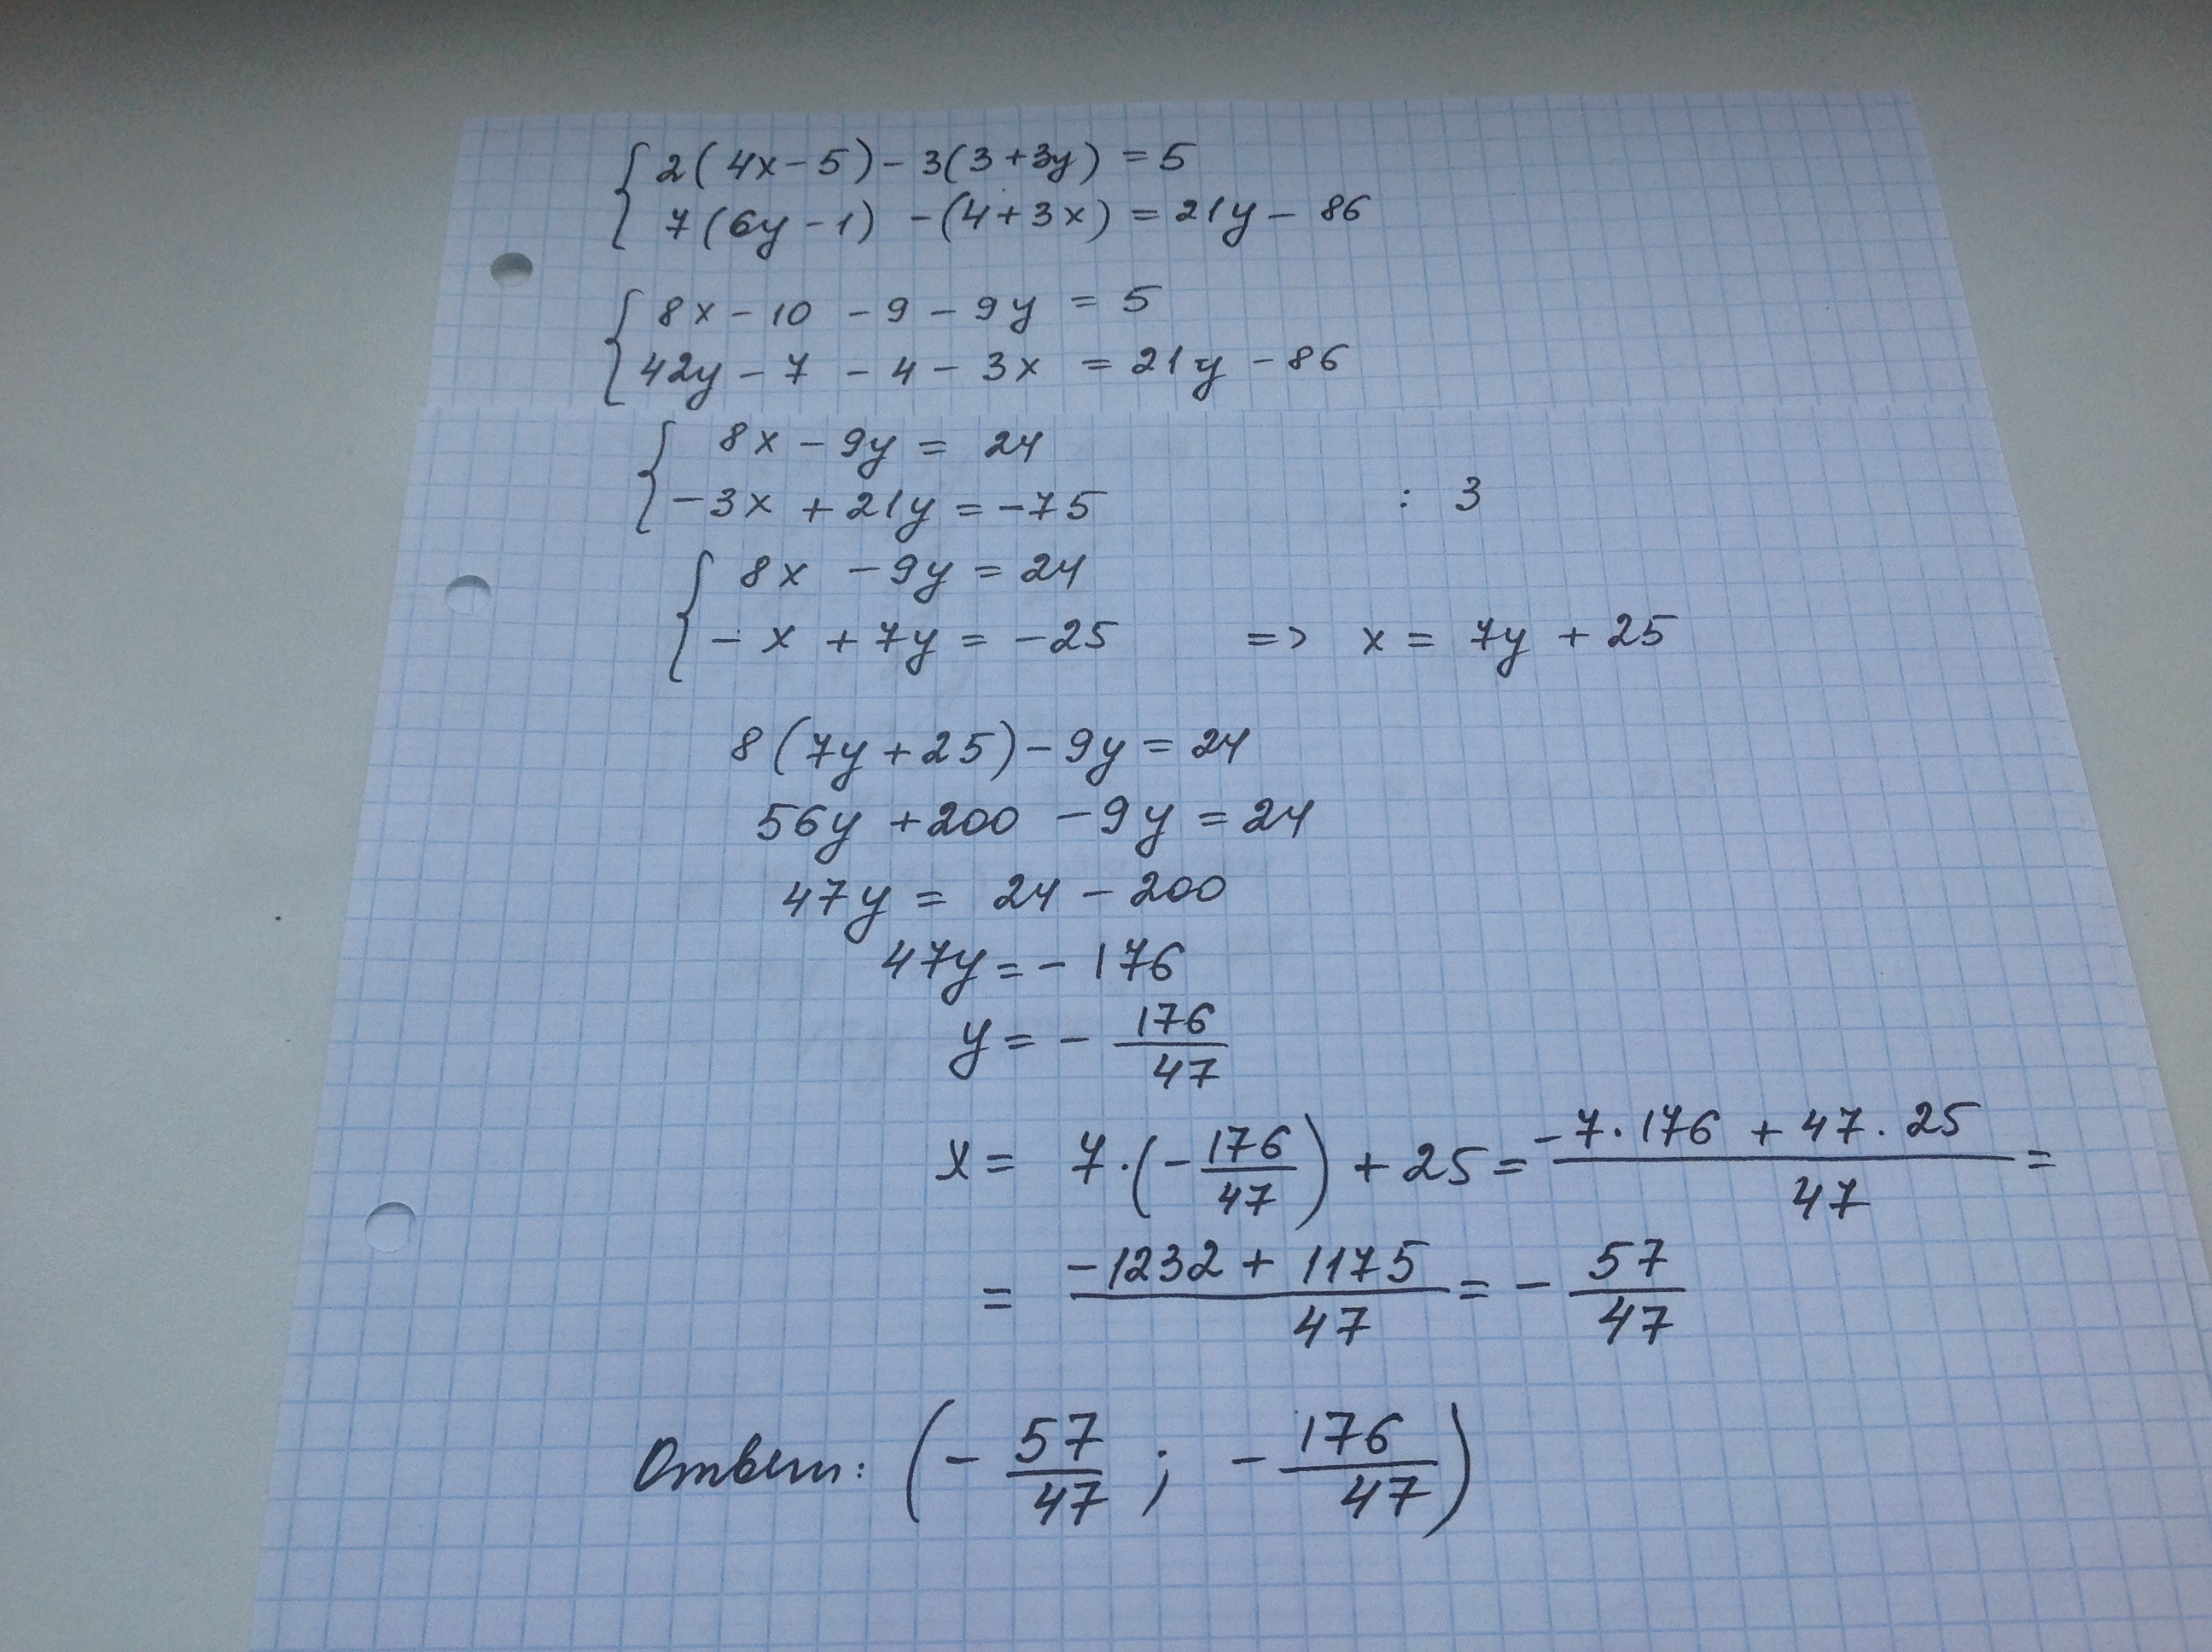 { 2(4x-5)-3(3+3y)=5
7(6y-1) -(4+3x)=21y-86
{ 8x-10 -9-9y=5
42y-7 -4-3x=21y-86
{ 8x-9y=24
-3x+21y=-75 : 3
{ 8x -9y=24
-x+7y=-25 => x=7y+25
8(7y+25)-9y=24
56y+200-9y=24
47y=24-200
47y=-176
y=-176/47
x=7·(-176/47)+25=(-7·176+47·25)/47=
=(-1232+1175)/47=-57/47
Ответ: (-57/47; -176/47)